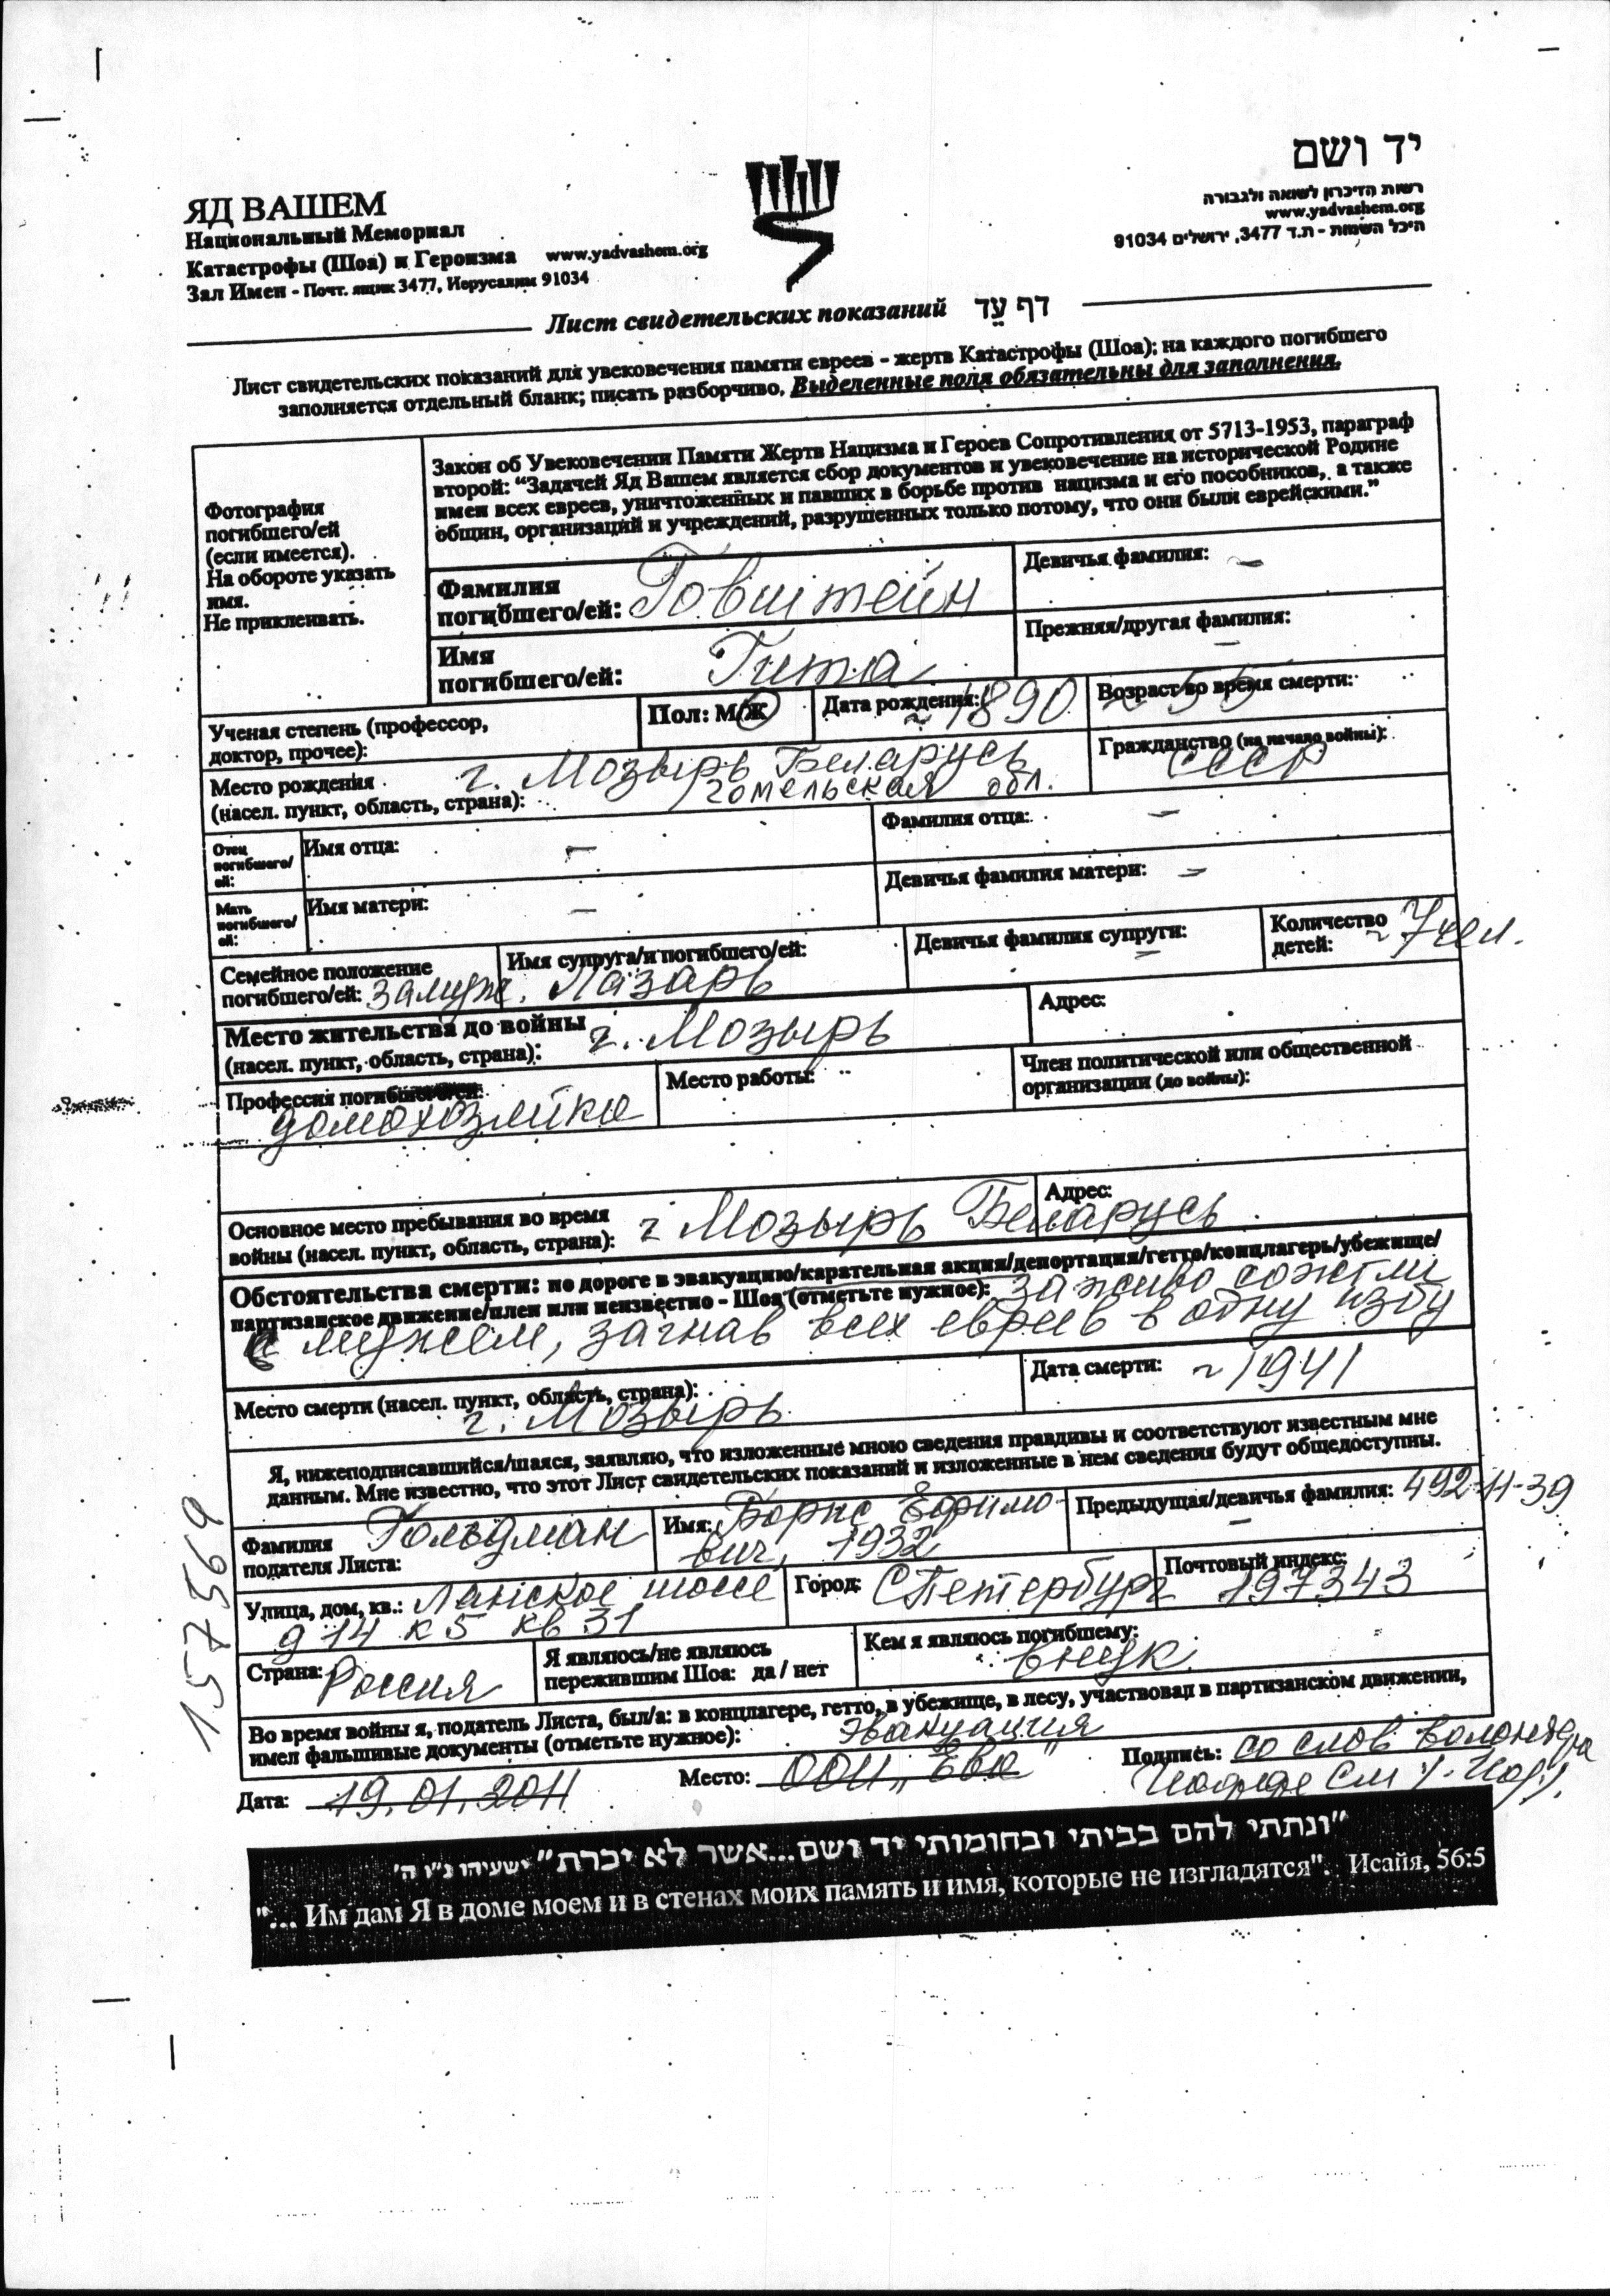 יד ושם
רשות הזיכרון לשואה ולגבורה
www.yadvashem.org
היכל השמות - ת.ד 3477, ירושלים 91034
ЯД ВАШЕМ
Национальный Мемориал
Катастрофы (Шоа) и Героизма www.yadvashem.org
Зал Имен - Почт. ящик 3477, Иерусалим 91034
Лист свидетельских показаний דף עֵד
Лист свидетельских показаний для увековечения памяти евреев - жертв Катастрофы (Шоа); на каждого погибшего
заполняется отдельный бланк; писать разборчиво. Выделенные поля обязательны для заполнения.
Фотография
погибшего/ей
(если имеется).
На обороте указать
имя.
Не приклеивать.
Закон об Увековечении Памяти Жертв Нацизма и Героев Сопротивления от 5713-1953, параграф
второй: “Задачей Яд Вашем является сбор документов и увековечение на исторической Родине
имен всех евреев, уничтоженных и павших в борьбе против нацизма и его пособников, а также
общин, организаций и учреждений, разрушенных только потому, что они были еврейскими.”
Фамилия
погибшего/ей: Говштейн
Девичья фамилия: –
Имя
погибшего/ей: Гита
Прежняя/другая фамилия: –
Ученая степень (профессор,
доктор, прочее):
Пол: М/Ж
Дата рождения: ~ 1890
Возраст во время смерти:
Место рождения г. Мозырь Беларусь
(насел. пункт, область, страна): Гомельская обл.
Гражданство (на начало войны):
СССР
Отец
погибшего/
ей:
Имя отца: –
Фамилия отца: –
Мать
погибшего/
ей:
Имя матери: –
Девичья фамилия матери: –
Семейное положение
погибшего/ей: замуж.
Имя супруга/и погибшего/ей:
Лазарь
Девичья фамилия супруги:
–
Количество
детей: ~ 7 чел.
Место жительства до войны
(насел. пункт, область, страна): г. Мозырь
Адрес:
Профессия погибшего/ей:
домохозяйка
Место работы:
Член политической или общественной
организации (до войны):
Основное место пребывания во время
войны (насел. пункт, область, страна): г Мозырь Беларусь
Адрес:
Обстоятельства смерти: по дороге в эвакуацию/карательная акция/депортация/гетто/концлагерь/убежище/
партизанское движение/плен или неизвестно - Шоа (отметьте нужное): заживо сожгли
с мужем, загнав всех евреев в одну избу
Место смерти (насел. пункт, область, страна):
г. Мозырь
Дата смерти: ~ 1941
Я, нижеподписавшийся/шаяся, заявляю, что изложенные мною сведения правдивы и соответствуют известным мне
данным. Мне известно, что этот Лист свидетельских показаний и изложенные в нем сведения будут общедоступны.
Фамилия
подателя Листа: Гольдман
Имя: Борис Ефимо-
вич, 1932
Предыдущая/девичья фамилия: 492-11-39
–
Улица, дом, кв.: Ланское шоссе
д 14 к 5 кв 31
Город: СПетербург
Почтовый индекс:
197343
Страна: Россия
Я являюсь/не являюсь
пережившим Шоа: да / нет
Кем я являюсь погибшему:
внук
Во время войны я, податель Листа, был/а: в концлагере, гетто, в убежище, в лесу, участвовал в партизанском движении,
имел фальшивые документы (отметьте нужное): эвакуация
Дата: 19.01.2011
Место: ООН „Ева"
Подпись: со слов волонтера
157569
"ונתתי להם בביתי ובחומותי יד ושם...אשר לא יכרת" ישעיהו נ"ו ה'
"... Им дам Я в доме моем и в стенах моих память и имя, которые не изгладятся". Исайя, 56:5